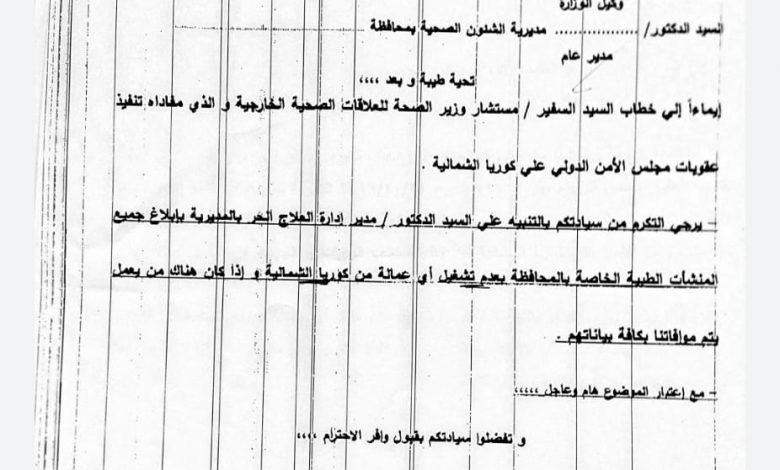 وكيل الوزارة
السيد الدكتور/ .................. مديرية الشئون الصحية بمحافظة ..................
مدير عام
تحية طيبة و بعد ،،،،
إيماءاً إلي خطاب السيد السفير / مستشار وزير الصحة للعلاقات الصحية الخارجية و الذي مفاداه تنفيذ
عقوبات مجلس الأمن الدولي علي كوريا الشمالية .
- يرجي التكرم من سيادتكم بالتنبيه علي السيد الدكتور / مدير إدارة العلاج الحر بالمديرية بإبلاغ جميع
المنشأت الطبية الخاصة بالمحافظة بعدم تشغيل أي عمالة من كوريا الشمالية و إذا كان هناك من يعمل
يتم موافاتنا بكافة بياناتهم .
- مع إعتبار الموضوع هام وعاجل ،،،،،
و تفضلوا سيادتكم بقبول وافر الاحترام ،،،،